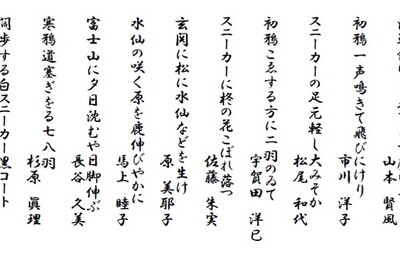 山本 賢風
初鴉一声鳴きて飛びにけり
市川 洋子
スニーカーの足元軽し大みそか
松尾 和代
初鴉こゑする方に二羽のゐて
宇賀田 洋巳
スニーカーに柊の花こぼれ落つ
佐藤 朱実
玄関に松に水仙などを生け
原 美耶子
水仙の咲く原を鹿伸びやかに
馬上 睦子
富士山に夕日沈むや日脚伸ぶ
長谷 久美
寒鴉道塞ぎをる七八羽
杉原 眞理
闊歩する白スニーカー黒コート